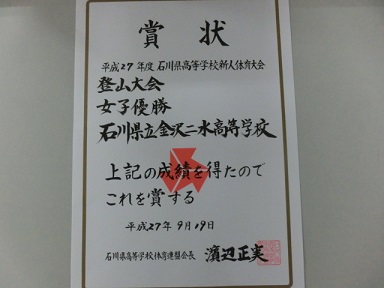 賞状
平成27年度 石川県高等学校新人体育大会
登山大会
女子優勝
石川県立金沢二水高等学校
上記の成績を得たので
これを賞する
平成27年9月19日
石川県高等学校体育連盟会長 濱辺正実